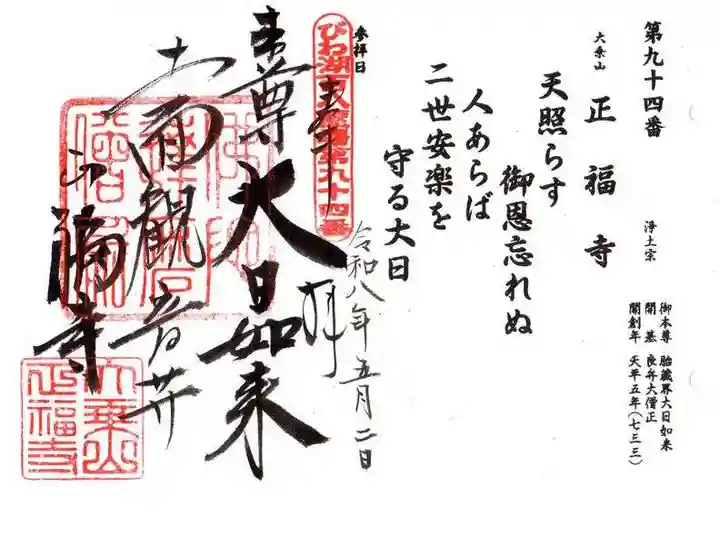 第九十四番
大乗山 正福寺 浄土宗
御本尊 胎蔵界大日如来
開基 良弁大僧正
開創年 天平五年(七三三)
天照らす
御恩忘れぬ
人あらば
二世安楽を
守る大日
参拝日
びわ湖百八霊場第九十四番
奉拝
令和八年五月二日
本尊大日如来
十一面観音廾
正福寺
大乗山
正福寺